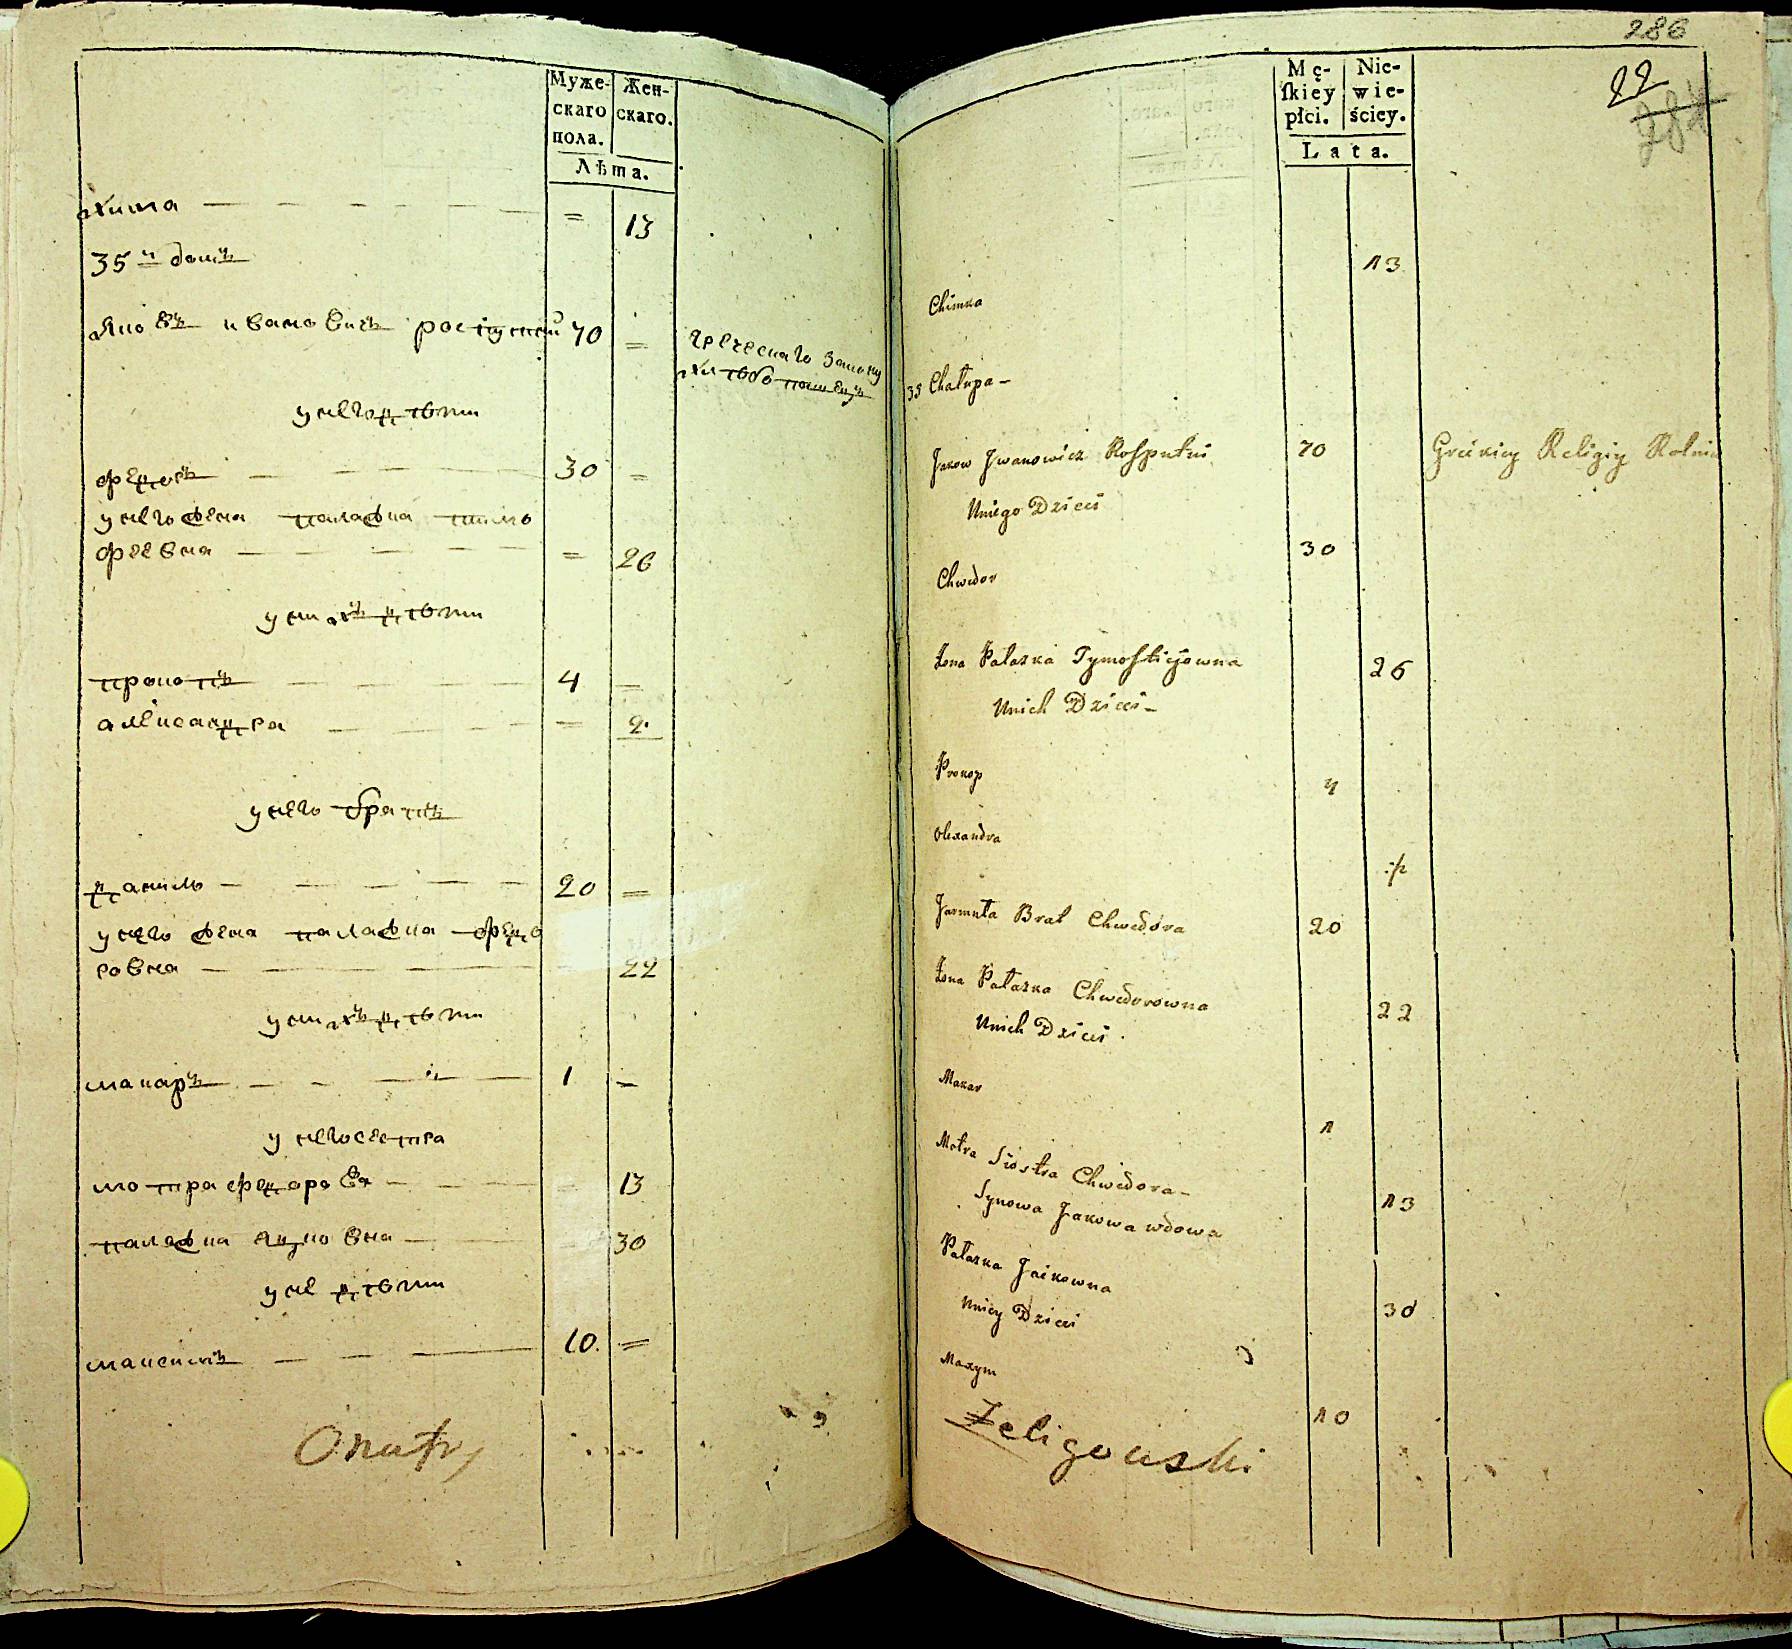 Муже-
скаго
пола.
Жен-
скаго.
Лѣта.
химка = 13
35й домъ
Яковъ Ивановичъ роспутний 70 =
греческаго закону
хлѣбопашецъ
у него дѣти
федоръ 30 =
у него жена палажка тимо
феевна = 26
у них дѣти
прокопъ 4 =
александра = 2
у него братъ
данило 20 =
у него жена палажка федо
ровна 22
у них дѣти
макаръ 1 =
у него сестра
мотра федорова = 13
палажка яцковна 30
у не дѣти
максимъ 10. =
286
22
Mę-
ſkiey
płci.
Nie-
wie-
ściey.
Lata.
Chimka 13
35 Chałupa
Jakow Jwanowicz Rosputni 70 Grickiey Religiy Rolnik
Uniego Dzieci
Chwedor 30
Żona Pałazka Tymoſtiejowna 26
Unich Dzieci
Prokop 4
Olexandra
Jarmuła Brat Chwedora 20
Żona Pałazka Chwedorowna 22
Unich Dzieci
Makar 1
Motra Siostra Chwedora 13
Synowa Jakowa wdowa
Pałazka Jackowna 30
Uniey Dzieci
Maxym 10
Żeligowski